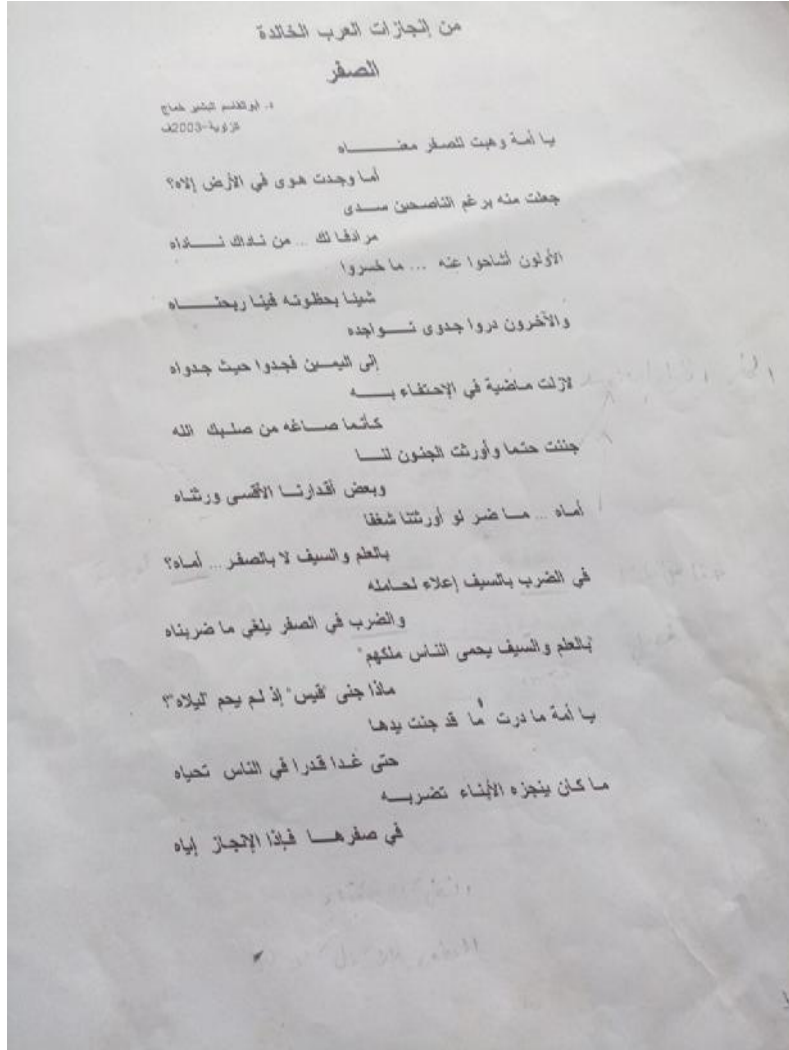 من إنجازات العرب الخالدة
الصفر
د. ابوالقاسم البشير خماج
الزاوية-2003ف
يا أمة وهبت للصفر معنـــــــاه
أما وجدت هوى في الأرض إلاه؟
جعلت منه برغم الناصحين ســدى
مرادفا لك ... من ناداك نـــاداه
الأولون أشاحوا عنه ... ما خسروا
شيئا بحظوته فينا ربحنـــــاه
والآخرون دروا جدوى تـــواجده
إلى اليمــين فجدوا حيث جدواه
لازلت ماضية في الإحتفاء بـــه
كأنما صـــاغه من صلبك الله
جننت حتما وأورثت الجنون لنـــا
وبعض أقدارنــا الأقسى ورثناه
أماه ... مــا ضر لو أورثتنا شغفا
بالعلم والسيف لا بالصفر ... أماه؟
في الضرب بالسيف إعلاء لحـامله
والضرب في الصفر يلغي ما ضربناه
"بالعلم والسيف يحمى الناس ملكهم"
ماذا جنى "قيس" إذ لم يحم "ليلاه"؟
يا أمة ما درت ما قد جنت يدهـا
حتى غـدا قدرا في الناس تحياه
ما كان ينجزه الأبناء تضربـــه
في صفرهـــا فإذا الإنجاز إياه